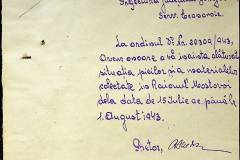 Prefectura Judeţului
Serv. Economic
La ordinul Dv. Nr. 29309/943,
Avem onoare a vă înainta alăturat
situaţia pieilor şi a materialelor
colectate în Raionul Mostovoi
dela data de 15 Iulie a.c. până la
1 August 1943.
Pretor,